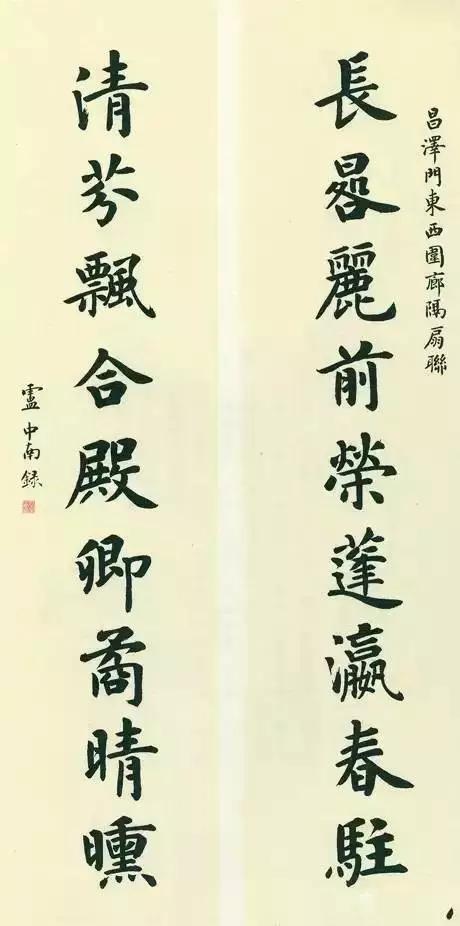 昌澤門東西圍廊隅扇聯
長晷麗前榮蓬瀛春駐
清芬飄合殿卿矞晴曛
盧中南錄